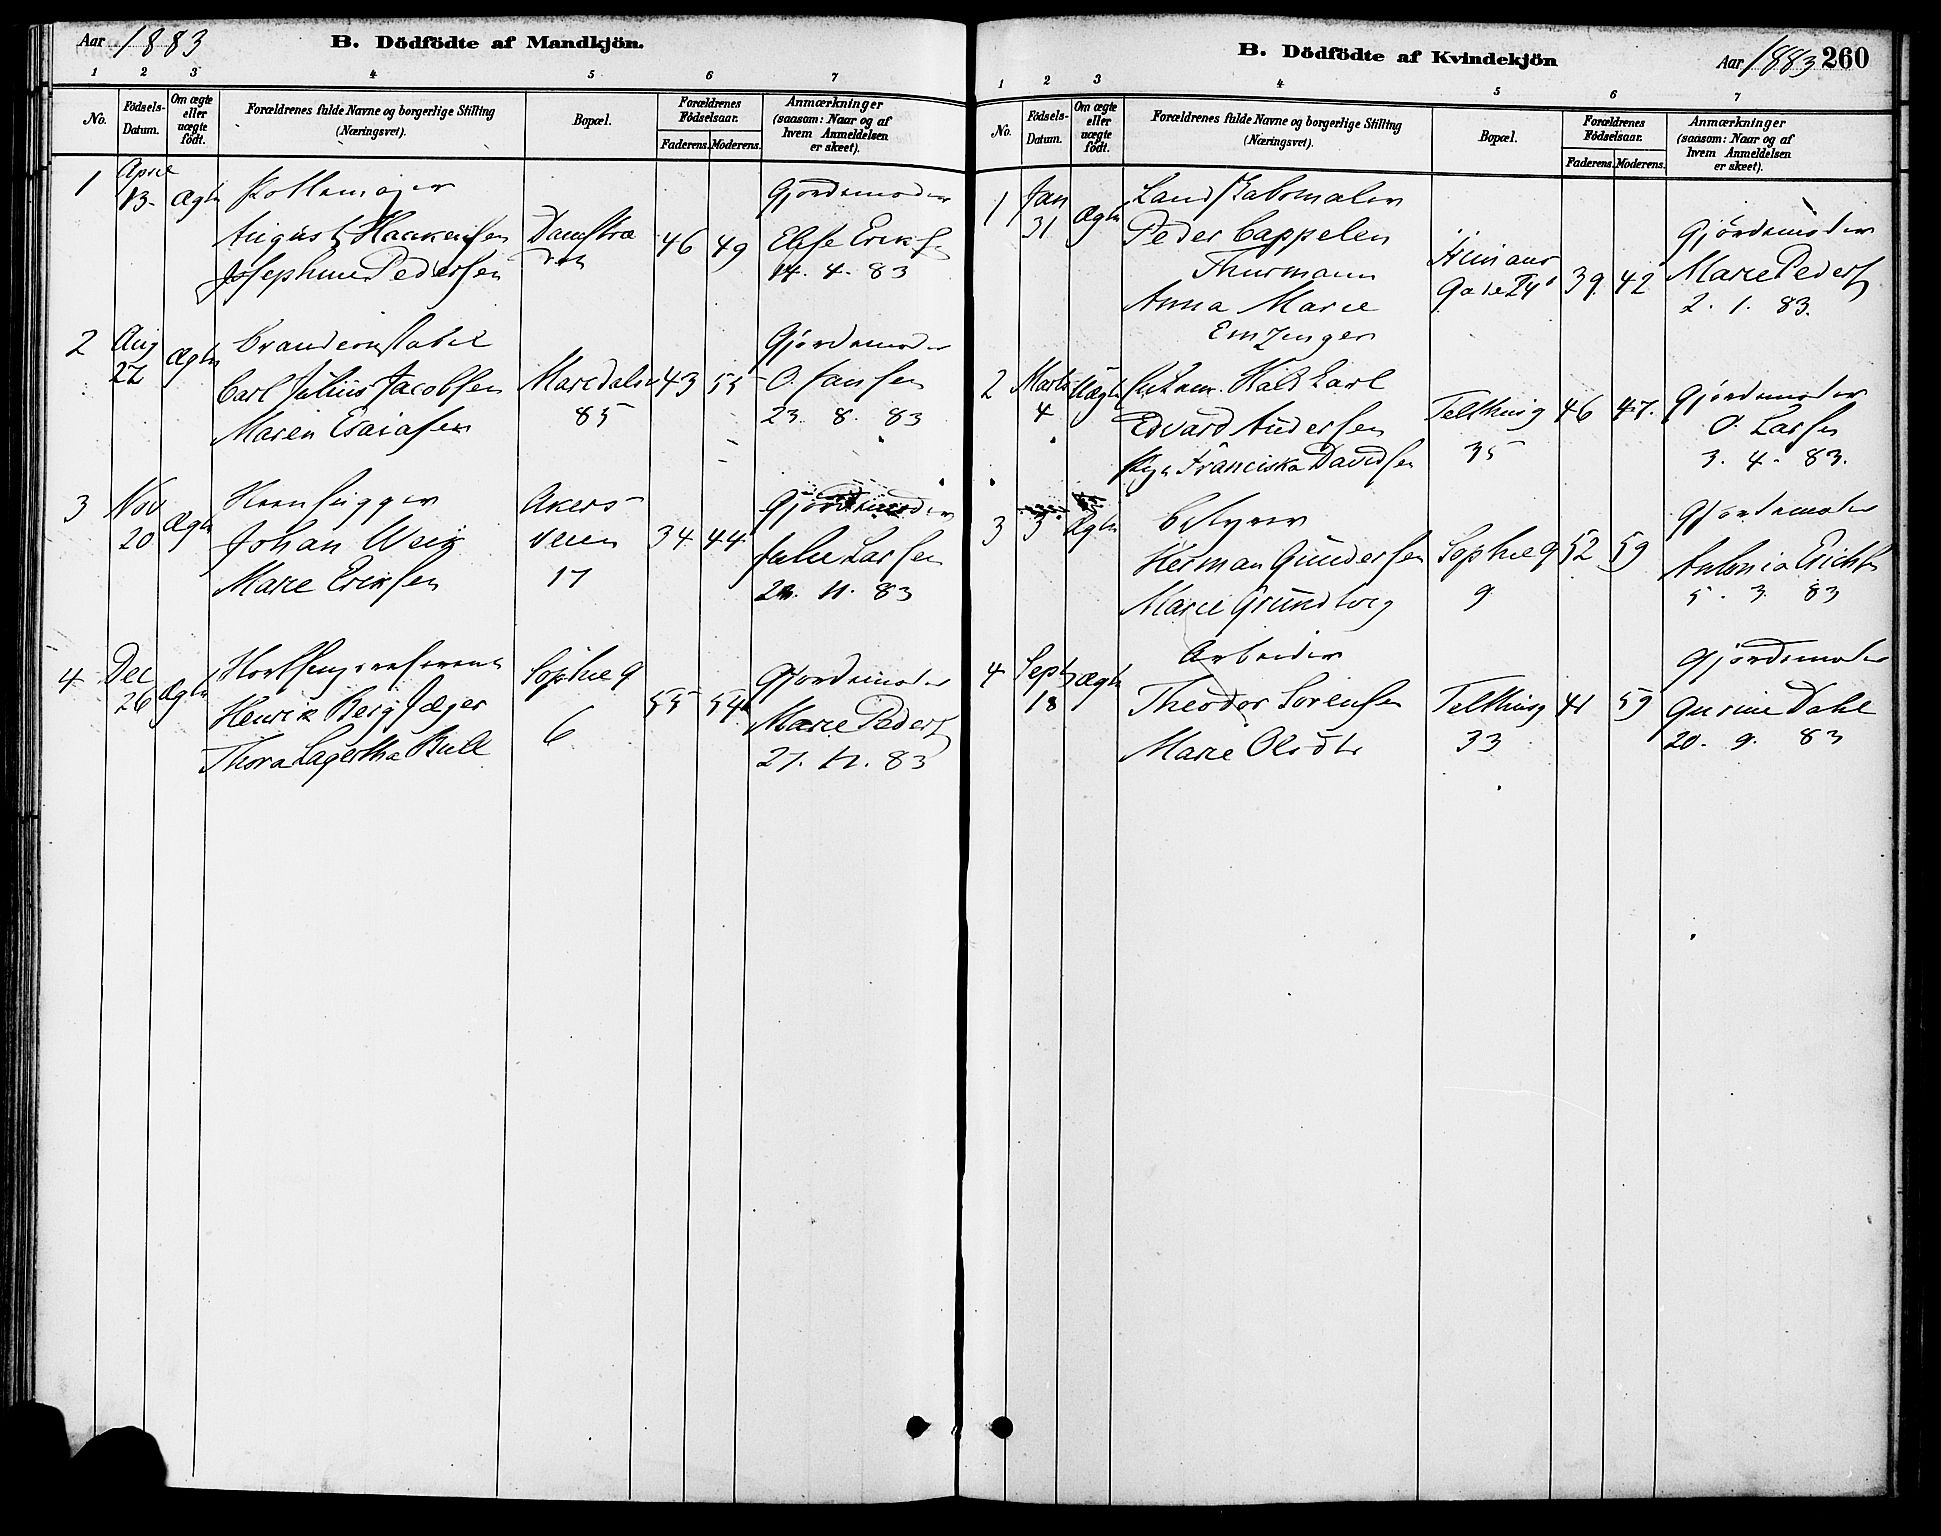 Aar 1883
B. Dödfödte af Mandkjön.
1 2 3 4 5 6 7
No.
Födsels-Datum.
Om ægte eller uægte födt.
Forældrenes fulde Navne og borgerlige Stilling (Næringsvei).
Bopæl.
Forældrenes Födselsaar.
Faderens. Moderens.
Anmærkninger (saasom: Naar og af hvem Anmeldelsen er skeet).
1 April 13. Ægte
August Haakensen
Josephine Pedersen
Damstræ
46 49
Gjordemoder
Elise Eriks
14. 4. 83
2 Aug 22 Ægte
Brandconstabel
Carl Julius Jacobsen
Maren Esaiasen
Maridalsv
85
43 55
Gjordemoder
O. Hansen
23. 8. 83
3 Nov 20 Ægte
Johan
Marie Eriksen
Akers-
veien
17
34 44
Gjordemoder
Julie Larsen
11. 83
4 Dec 26 Ægte
Henrik Berg Jæger
Thora Lagertha Bull
Sophie g
6
55 54
Gjordemoder
Marie Peders
27. 12. 83
B. Dödfödte af Kvindekjön
Aar 1883 260
1 2 3 4 5 6 7
No.
Födsels-Datum.
Om ægte eller uægte födt.
Forældrenes fulde Navne og borgerlige Stilling (Næringsvei).
Bopæl.
Forældrenes Födselsaar.
Faderens. Moderens.
Anmærkninger (saasom: Naar og af hvem Anmeldelsen er skeet).
1 Jan 31 Ægte
Landskabsmaler
Peder Cappelen
Thurmann
Anna Marie
39 42
Gjordemoder
Marie Peders
2. 1. 83.
2 Marts 4 Uægte
Edvard Andersen
Pige Franciska Davidsen
Telthusg
35
46 47.
Gjordemoder
O. Larsen
3. 4. 83.
3 3 Ægte
Bestyrer
Herman Gundersen
Marie Grundtvig
Sophie g
9
52 59
Gjordemoder
Antonia Erichs
5. 3. 83
4 Septb 18 Ægte
Arbeider
Theodor Sorensen
Marie Olsdtr
Telthusg
33
41 59
Gjordemoder
Gurine Dahl
20. 9. 83